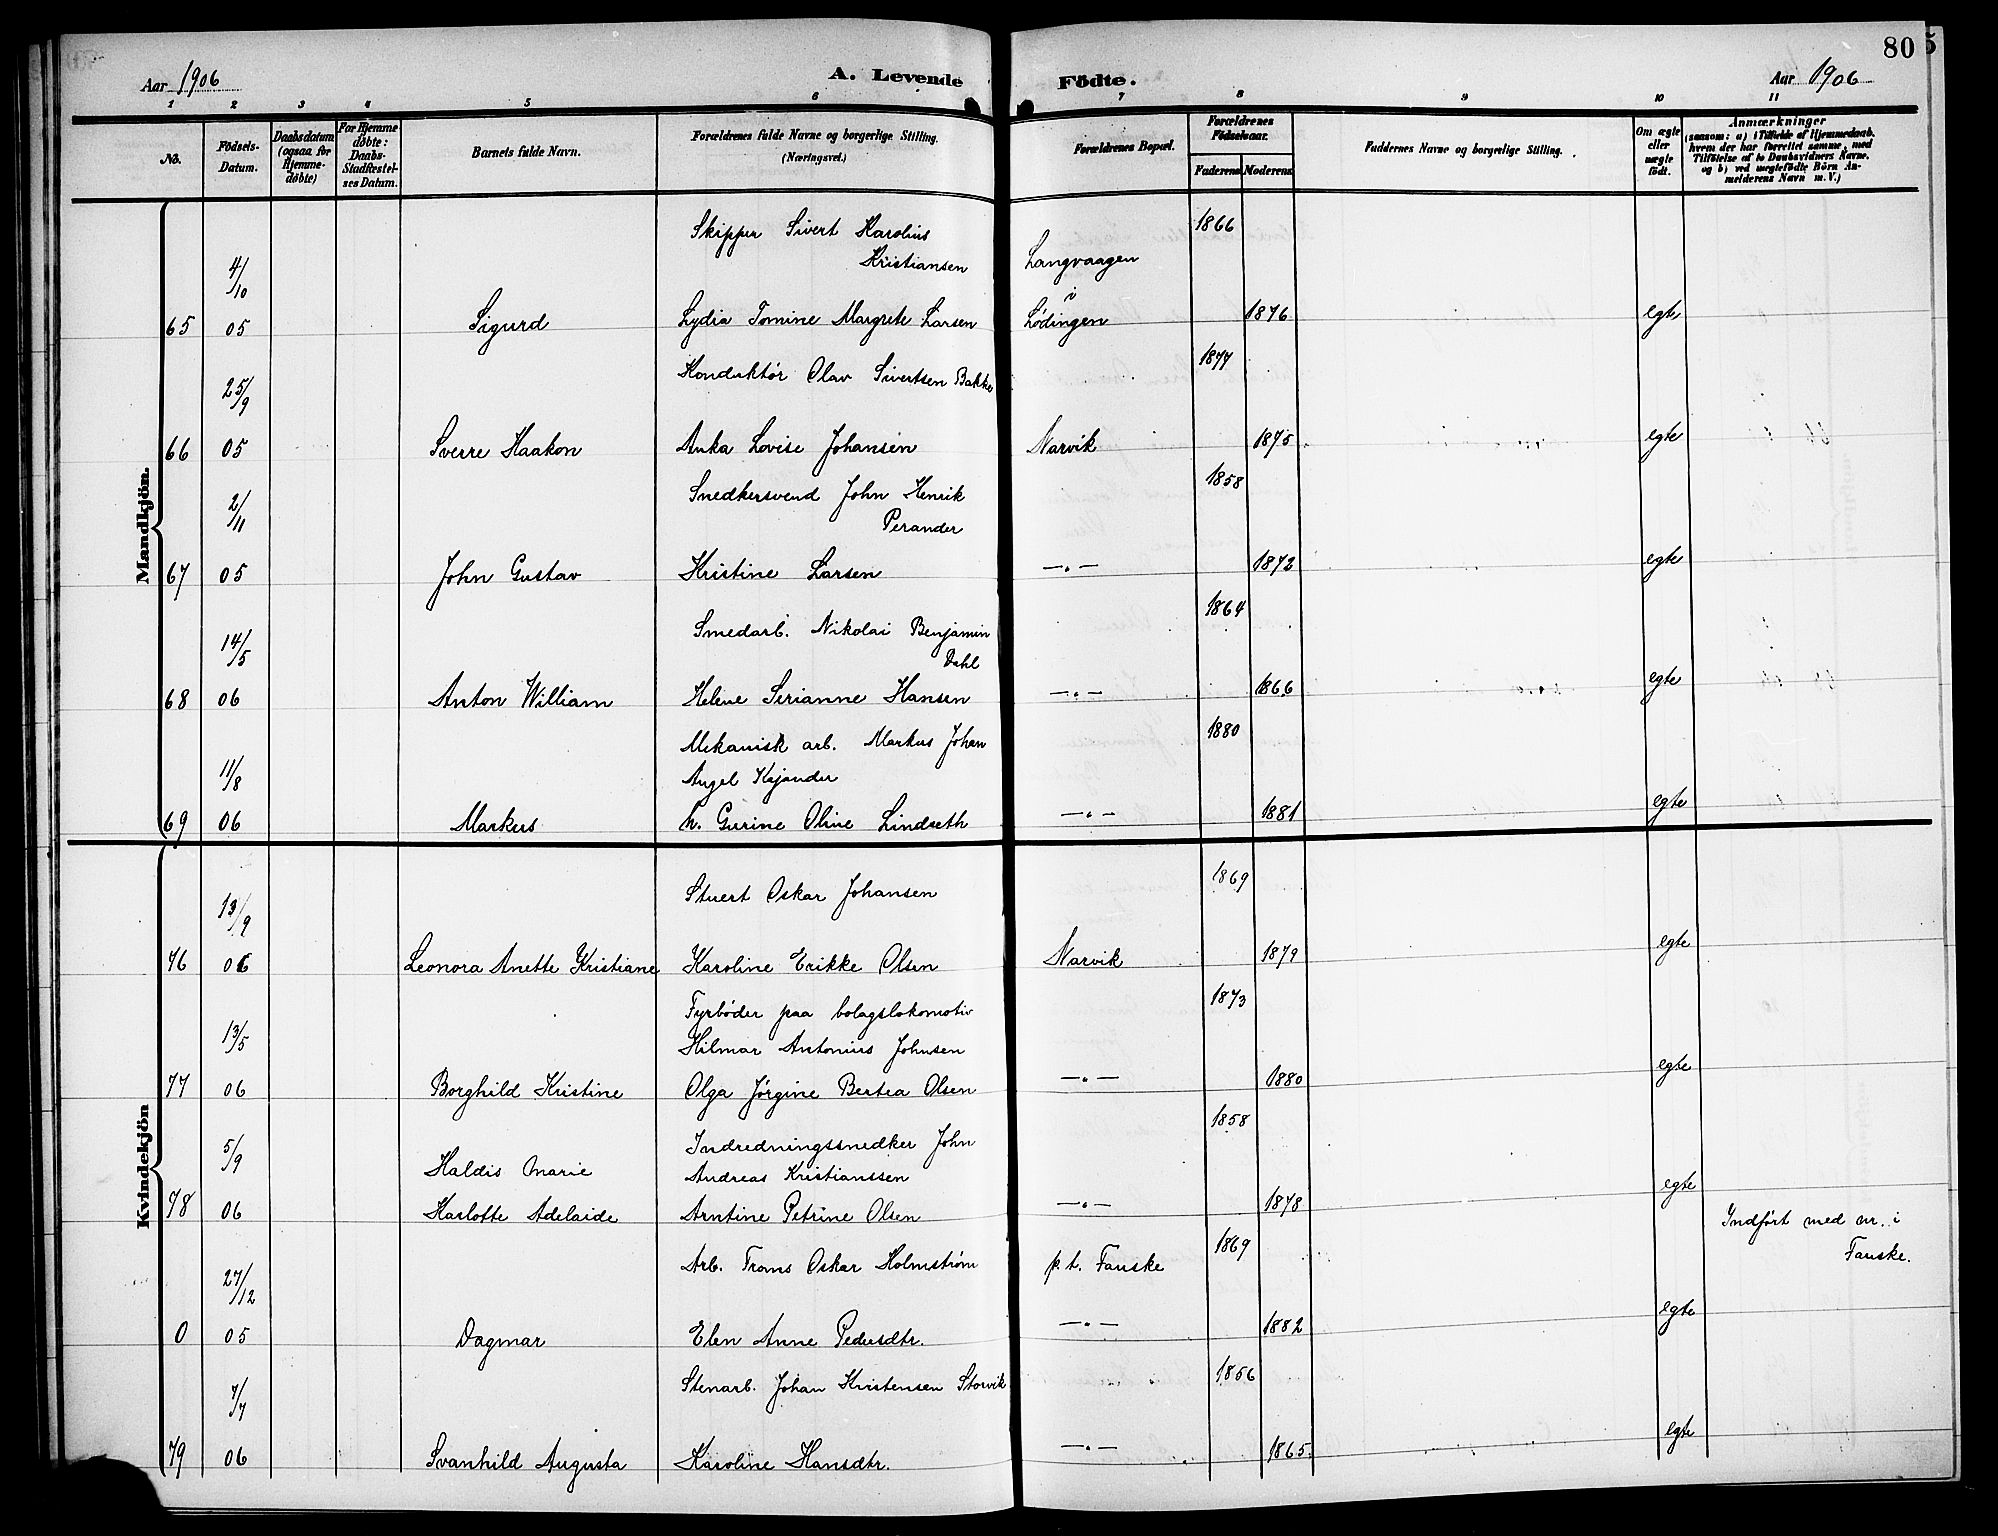 80
5
Aar 1906
A. Levende Fødte.
Aar 1906
1 2 3 4 5 6 7 8 9 10 11
No.
Födsels-Datum.
Daabsdatum (ogsaa for Hjemme-døbte)
For Hjemme-döbte: Daabs-Stadfæstelses Datum.
Barnets fulde Navn.
Forældrenes fulde Navne og borgerlige Stilling. (Næringsvei.)
Forældrenes Bopæl.
Forældrenes Födselsaar.
Faderens Moderens
Faddernes Navne og borgerlige Stilling.
Om ægte eller uægte födt.
Anmærkninger
(saasom: a) i Tilfælde af Hjemmedaab, hvem der har forrettet samme, med Tilföielse af to Daabsvidners Navne, og b) ved uægtefödte Börn Anmelderens Navn m. V.)
Mandkjön.
Skipper Sivert Karolius 1866
4/10 Kristiansen Langvaagen
i
65 05 Sigurd Lydia Tomine Margrete Larsen Lødingen 1876 egte
Konduktør Olav Sivertsen Bakke 1877
25/9
66 05 Sverre Haakon Anka Lovise Johansen Narvik 1875 egte
Snedkersvend John Henrik 1858
2/11 Perander
67 05 John Gustav Kristine Larsen —„— 1872 egte
Smedarb. Nikolai Benjamin 1864
14/5 Dahl
68 06 Anton William Helene Serianne Hansen —„— 1866 egte
Mekanisk arb. Markus Johan 1880
11/8 Angel Kajander
69 06 Markus h. Gurine Oline Lindseth —„— 1881 egte
Kvindekjön
Stuert Oskar Johansen 1869
13/9
76 06 Leonora Anette Kristiane Karoline Erikke Olsen Narvik 1879 egte
Fyrbøder paa bolagslokomotiv 1873
13/5 Hilmar Antonius Johnsen
77 06 Borghild Kristine Olga Jørgine Bertea Olsen —„— 1880 egte
Indredningssnedker John 1858
5/9 Haldis Marie Andreas Kristianssen
78 06 Karlotte Adelaide Arntine Petrine Olsen —„— 1878 egte
Indført med nr. i
Fauske.
Arb. Frans Oskar Holmstrøm p.t. Fauske 1869
27/12
0 05 Dagmar Elen Anne Pedersdtr. —„— 1882 egte
Stenarb. Johan Kristensen Storvik 1856
7/7
79 06 Svanhild Augusta Karoline Hansdtr. —„— 1865 egte